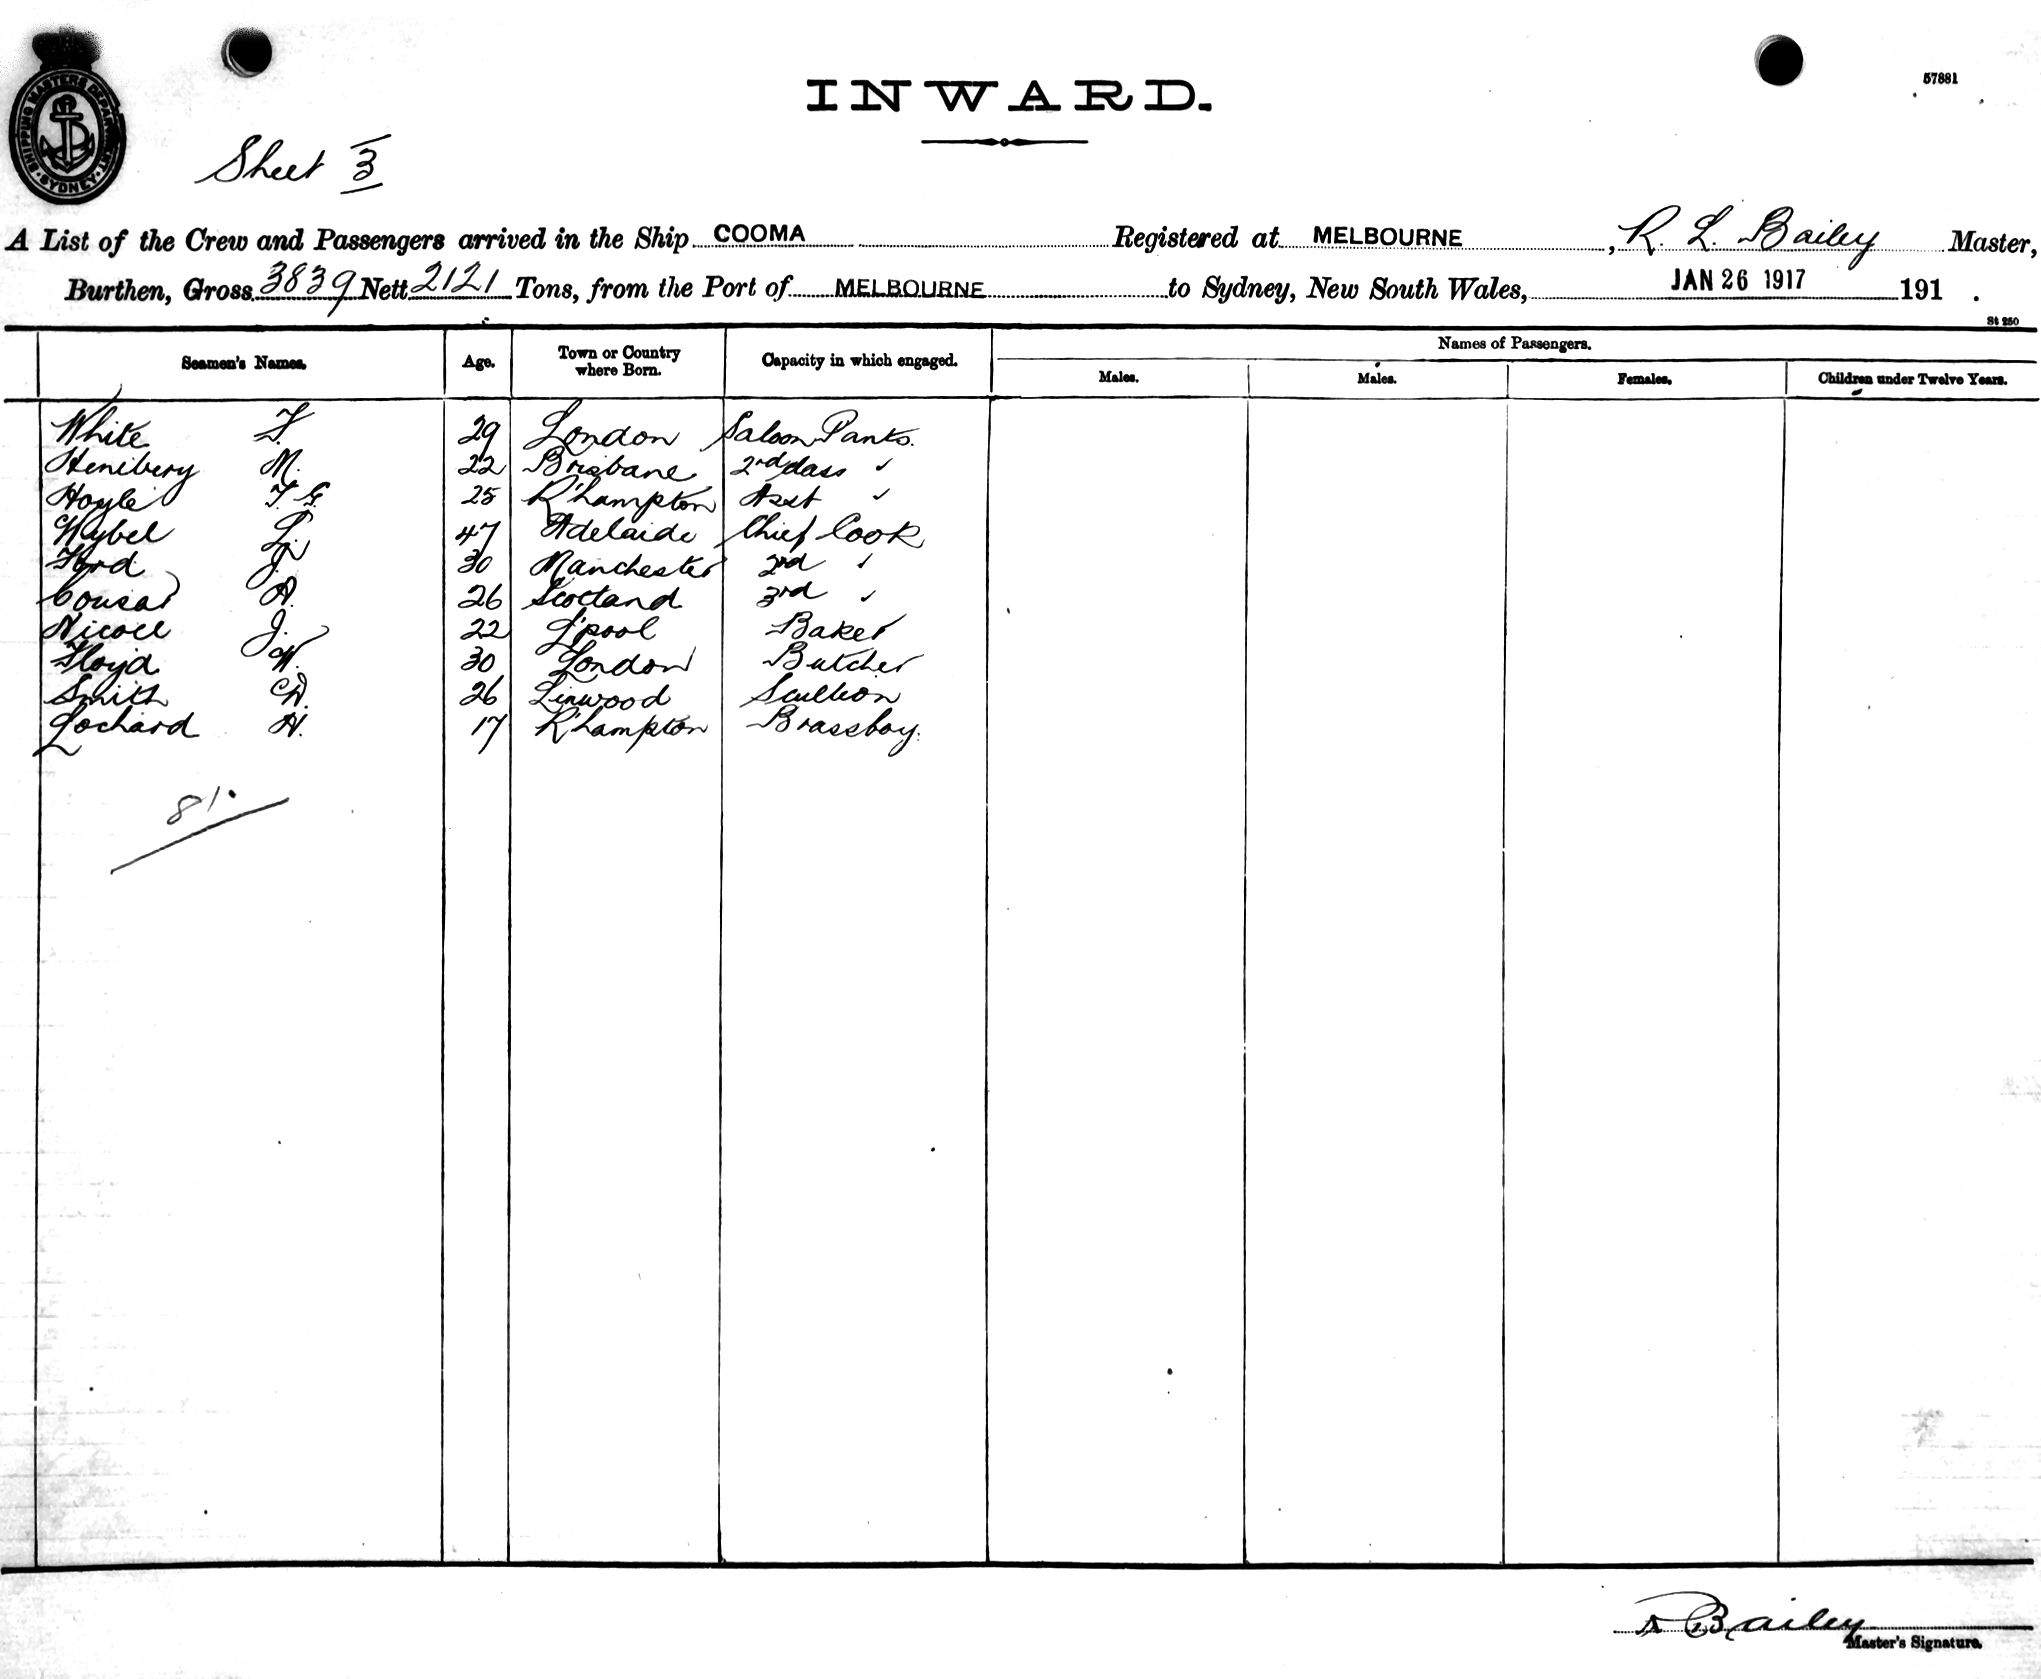 SHIPPING MASTERS DEPARTMENT SYDNEY
57881
INWARD.
Sheet 3
A List of the Crew and Passengers arrived in the Ship COOMA Registered at MELBOURNE, R. L. Bailey Master,
Burthen, Gross 3839 Nett 2121 Tons, from the Port of MELBOURNE to Sydney, New South Wales, JAN 26 1917 191 .
St 250
Seamen's Names. Age. Town or Country where Born. Capacity in which engaged. Names of Passengers.
Males. Males. Females. Children under Twelve Years.
White 29 London Saloon Pants.
Henibery M. 22 Brisbane 2nd class "
Hoyle T. G. 25 R'hampton Asst "
Waybel L. 47 Adelaide Chief Cook
Ford J. 30 Manchester 2nd "
Cousar A. 26 Scotland 3rd "
Nicoll J. 22 L'pool Baker
Floyd W. 30 London Butcher
Smith W. 26 Linwood Scullion
Lochard H. 17 R'hampton Brassboy.
81.
R Bailey
Master's Signature.